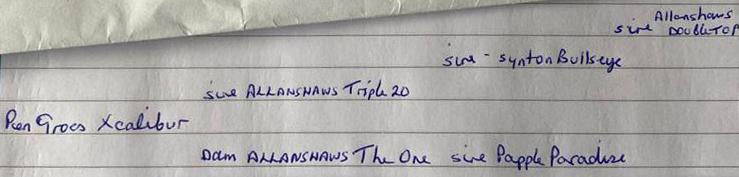 Allanshaws
sire DOUBLETOP
sire - Synton Bullseye
sire ALLANSHAWS Triple 20
Pen Groes Xcalibur
Dam ALLANSHAWS The One sire Papple Paradise